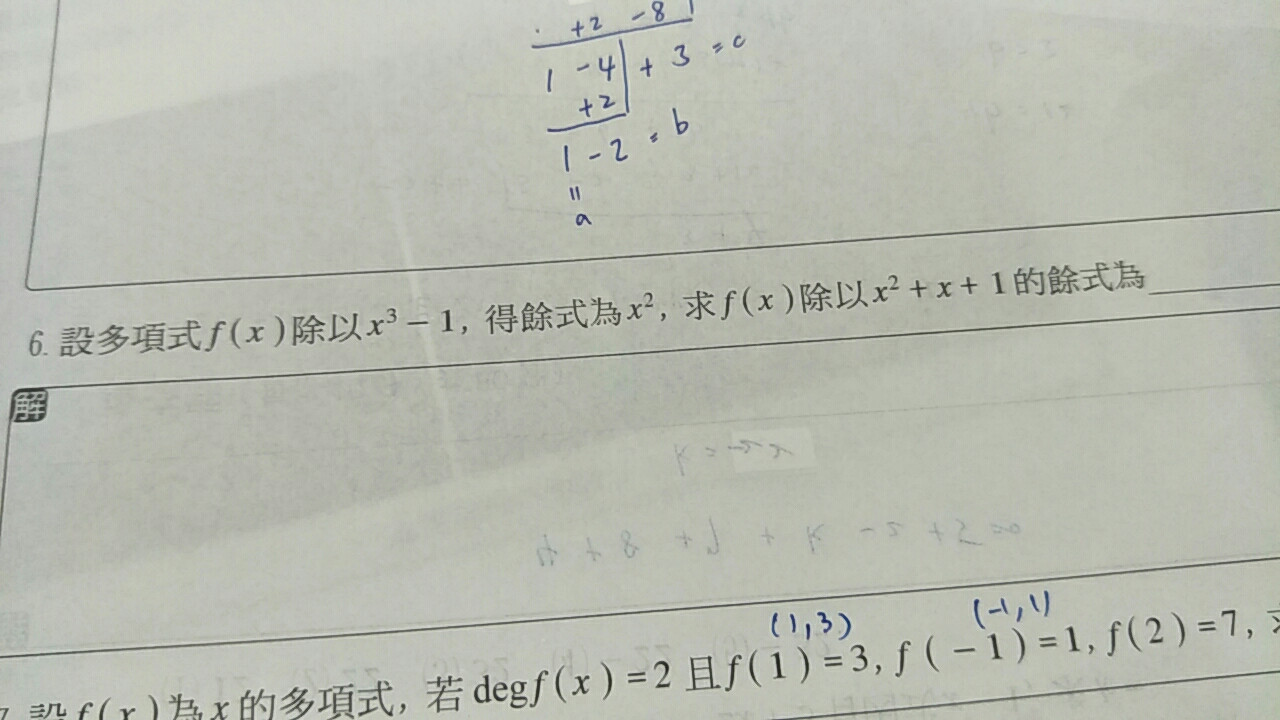 +2 -8
1 -4 + 3 = c
+2
1 -2 = b
=
a
6. 設多項式f(x)除以x³-1, 得餘式為x², 求f(x)除以x²+x+1的餘式為
解
(1,3) (-1,1)
設f(x)為x的多項式, 若degf(x)=2且f(1)=3, f(-1)=1, f(2)=7,